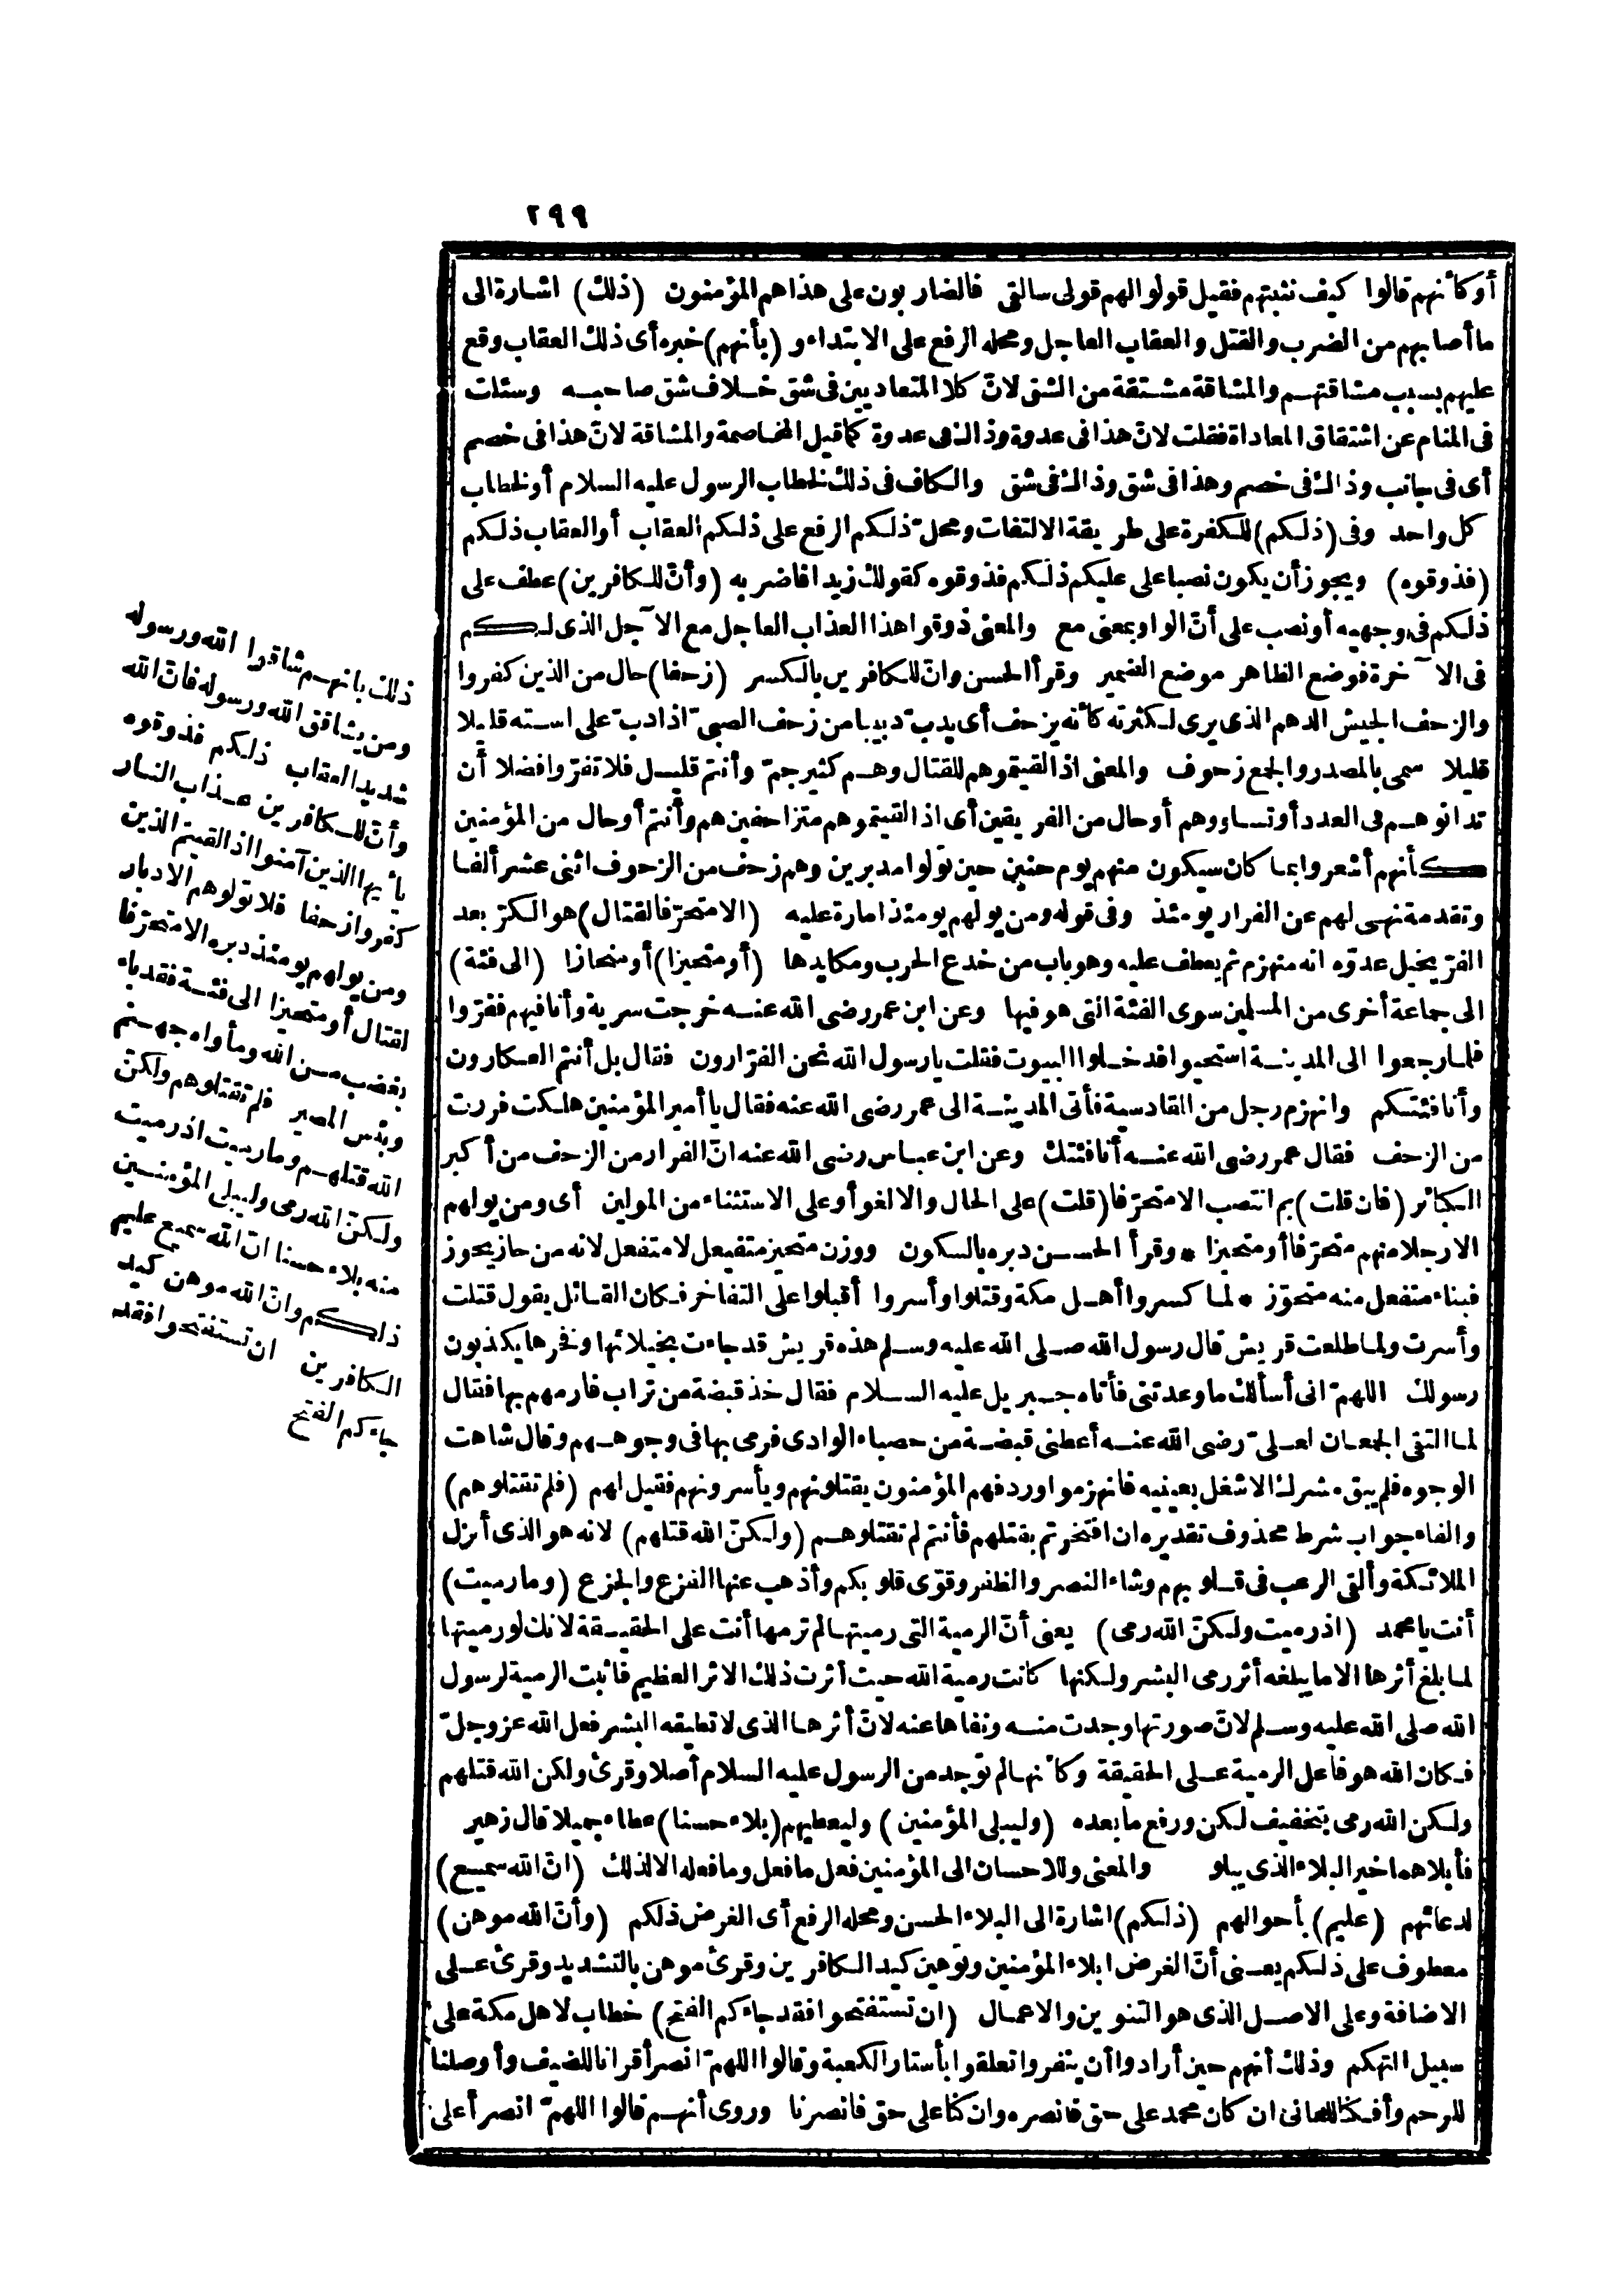 ٢٩٩
أو كأنهم قالوا كيف نثبتهم فقيل قولوا لهم قولى سألقى فالضاربون على هذا هم المؤمنون (ذلك) اشارة الى
ما أصابهم من الضرب والقتل والعقاب العاجل ومحله الرفع على الابتداء و (بأنهم) خبره أى ذلك العقاب وقع
عليهم بسبب مشاقتهم والمشاقة مشتقة من الشق لانّ كلا المتعاديين فى شق خلاف شق صاحبه وسئلت
فى المنام عن اشتقاق المعاداة فقلت لانّ هذا فى عدوة وذاك فى عدوة كما قيل المخاصمة والمشاقة لانّ هذا فى خصم
أى فى جانب وذاك فى خصم وهذا فى شق وذاك فى شق والكاف فى ذلك لخطاب الرسول عليه السلام أو لخطاب
كل واحد وفى (ذلكم) للكفرة على طريقة الالتفات ومحلّ ذلكم الرفع على ذلكم العقاب أو العقاب ذلكم
(فذوقوه) ويجوز أن يكون نصبا على عليكم ذلكم فذوقوه كقولك زيدا فاضربه (وأنّ للكافرين) عطف على
ذلكم فى وجهيه أو نصب على أنّ الواو بمعنى مع والمعنى ذوقوا هذا العذاب العاجل مع الآجل الذى لكم
فى الآخرة فوضع الظاهر موضع الضمير وقرأ الحسن وانّ للكافرين بالكسر (زحفا) حال من الذين كفروا
والزحف الجيش الدهم الذى يرى لكثرته كأنه يزحف أى يدبّ دبيبا من زحف الصبىّ اذا دبّ على استه قليلا
قليلا سمى بالمصدر والجمع زحوف والمعنى اذا لقيتموهم للقتال وهم كثير جمّ وأنتم قليل فلا تفرّوا فضلا أن
تدانوهم فى العدد أو تساووهم أو حال من الفريقين أى اذا لقيتموهم متزاحفين هم وأنتم أو حال من المؤمنين
كأنهم أشعروا بما كان سيكون منهم يوم حنين حين تولوا مدبرين وهم زحف من الزحوف اثنى عشر ألفا
وتقدمة نهى لهم عن الفرار يومئذ وفى قوله ومن يولهم يومئذ امارة عليه (الا متحرّفا لقتال) هو الكرّ بعد
الفرّ يخيل عدوّه انه منهزم ثم يعطف عليه وهو باب من خدع الحرب ومكايدها (أو متحيزا) أو منحازا (الى فئة)
الى جماعة أخرى من المسلمين سوى الفئة التى هو فيها وعن ابن عمر رضى الله عنه خرجت سرية وأنا فيهم ففرّوا
فلما رجعوا الى المدينة استحيوا فدخلوا البيوت فقلت يا رسول الله نحن الفرّارون فقال بل أنتم العكارون
وأنا فئتكم وانهزم رجل من القادسية فأتى المدينة الى عمر رضى الله عنه فقال يا أمير المؤمنين هلكت فررت
من الزحف فقال عمر رضى الله عنه أنا فئتك وعن ابن عباس رضى الله عنه انّ الفرار من الزحف من أكبر
الكبائر (فان قلت) بم انتصب الا متحرّفا (قلت) على الحال والا لغو أو على الاستثناء من المولين أى ومن يولهم
الا رجلا منهم متحرّفا أو متحيزا * وقرأ الحسن دبره بالسكون ووزن متحيز متفيعل لا متفعل لانه من حاز يحوز
فبناء متفعل منه متحوّز * لما كسروا أهل مكة وقتلوا وأسروا أقبلوا على التفاخر فكان القائل يقول قتلت
وأسرت ولما طلعت قريش قال رسول الله صلى الله عليه وسلم هذه قريش قد جاءت بخيلائها وفخرها يكذبون
رسولك اللهمّ انى أسألك ما وعدتنى فأتاه جبريل عليه السلام فقال خذ قبضة من تراب فارمهم بها فقال
لما التقى الجمعان لعلىّ رضى الله عنه أعطنى قبضة من حصباء الوادى فرمى بها فى وجوههم وقال شاهت
الوجوه فلم يبق مشرك الا شغل بعينيه فانهزموا وردفهم المؤمنون يقتلونهم ويأسرونهم فقيل لهم (فلم تقتلوهم)
والفاء جواب شرط محذوف تقديره ان افتخرتم بقتلهم فأنتم لم تقتلوهم (ولكنّ الله قتلهم) لانه هو الذى أنزل
الملائكة وألقى الرعب فى قلوبهم وشاء النصر والظفر وقوّى قلوبكم وأذهب عنها الفزع والجزع (وما رميت)
أنت يا محمد (اذ رميت ولكنّ الله رمى) يعنى أنّ الرمية التى رميتها لم ترمها أنت على الحقيقة لانك لو رميتها
لما بلغ أثرها الا ما يبلغه أثر رمى البشر ولكنها كانت رمية الله حيث أثرت ذلك الاثر العظيم فأثبت الرمية لرسول
الله صلى الله عليه وسلم لانّ صورتها وجدت منه ونفاها عنه لانّ أثرها الذى لا تطيقه البشر فعل الله عز وجلّ
فكان الله هو فاعل الرمية على الحقيقة وكأنها لم توجد من الرسول عليه السلام أصلا وقرئ ولكن الله قتلهم
ولكن الله رمى بتخفيف لكن ورفع ما بعده (وليبلى المؤمنين) وليعطيهم (بلاء حسنا) عطاء جميلا قال زهير
فأبلاهما خير البلاء الذى يبلو والمعنى وللاحسان الى المؤمنين فعل ما فعل وما فعله الا لذلك (انّ الله سميع)
لدعائهم (عليم) بأحوالهم (ذلكم) اشارة الى البلاء الحسن ومحله الرفع أى الغرض ذلكم (وأنّ الله موهن)
معطوف على ذلكم يعنى أنّ الغرض ابلاء المؤمنين وتوهين كيد الكافرين وقرئ موهن بالتشديد وقرئ على
الاضافة وعلى الاصل الذى هو التنوين والاعمال (ان تستفتحوا فقد جاءكم الفتح) خطاب لاهل مكة على
سبيل التهكم وذلك أنهم حين أرادوا أن ينفروا تعلقوا بأستار الكعبة وقالوا اللهمّ انصر أقرانا للضيف وأوصلنا
للرحم وأفكنا للعانى ان كان محمد على حق فانصره وان كنا على حق فانصرنا وروى أنهم قالوا اللهمّ انصر أعلى
ذلك بانهم شاقوا الله ورسوله
ومن يشاقق الله ورسوله فانّ الله
شديد العقاب ذلكم فذوقوه
وأنّ للكافرين عذاب النار
يأيها الذين آمنوا اذا لقيتم الذين
كفروا زحفا فلا تولوهم الادبار
ومن يولهم يومئذ دبره الا متحرّفا
لقتال أو متحيزا الى فئة فقد باء
بغضب من الله ومأواه جهنم
وبئس المصير فلم تقتلوهم ولكنّ
الله قتلهم وما رميت اذ رميت
ولكنّ الله رمى وليبلى المؤمنين
منه بلاء حسنا انّ الله سميع عليم
ذلكم وانّ الله موهن كيد
الكافرين ان تستفتحوا فقد
جاءكم الفتح